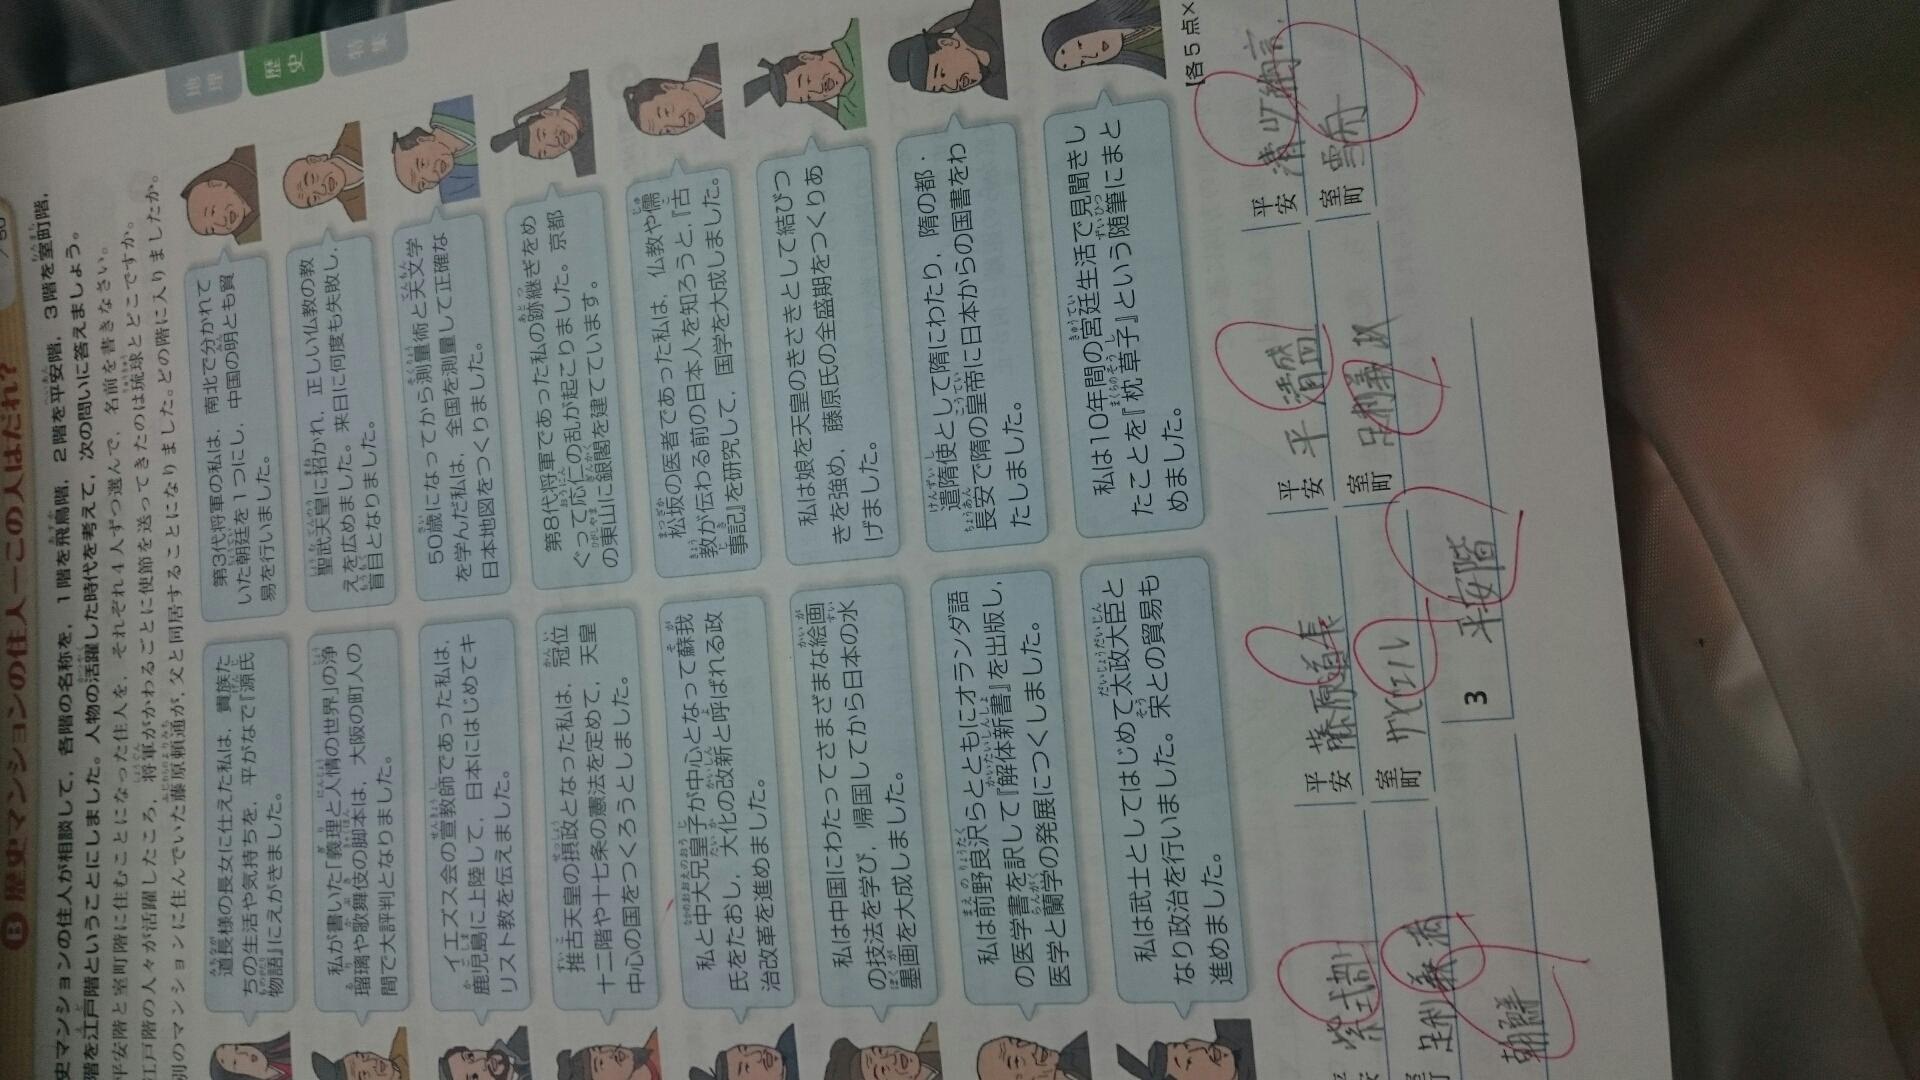 B 歴史マンションの住人ーこの人はだれ?
史マンションの住人が相談して，各階の名称を，1階を飛鳥階，2階を平安階，3階を室町階，
階を江戸階ということにしました。人物の活躍した時代を考えて，次の問いに答えましょう。
平安階と室町階に住むことになった住人を，それぞれ4人ずつ選んで，名前を書きなさい。
江戸階の人々が活躍したころ，将軍がかわるごとに使節を送ってきたのは琉球とどこですか。
別のマンションに住んでいた藤原頼通が，父と同居することになりました。どの階に入りましたか。
地理
歴史
特集
道長様の長女に仕えた私は，貴族た
ちの生活や気持ちを，平がなで『源氏
物語』にえがきました。
第3代将軍の私は，南北で分かれて
いた朝廷を1つにし，中国の明とも貿
易を行いました。
私が書いた「義理と人情の世界」の浄
瑠璃や歌舞伎の脚本は，大阪の町人の
間で大評判となりました。
聖武天皇に招かれ，正しい仏教の教
えを広めました。来日に何度も失敗し，
盲目となりました。
イエズス会の宣教師であった私は，
鹿児島に上陸して，日本にはじめてキ
リスト教を伝えました。
50歳になってから測量術と天文学
を学んだ私は，全国を測量して正確な
日本地図をつくりました。
推古天皇の摂政となった私は，冠位
十二階や十七条の憲法を定めて，天皇
中心の国をつくろうとしました。
第8代将軍であった私の跡継ぎをめ
ぐって応仁の乱が起こりました。京都
の東山に銀閣を建てています。
私と中大兄皇子が中心となって蘇我
氏をたおし，大化の改新と呼ばれる政
治改革を進めました。
松坂の医者であった私は，仏教や儒
教が伝わる前の日本人を知ろうと，『古
事記』を研究して，国学を大成しました。
私は中国にわたってさまざまな絵画
の技法を学び，帰国してから日本の水
墨画を大成しました。
私は娘を天皇のきさきとして結びつ
きを強め，藤原氏の全盛期をつくりあ
げました。
私は前野良沢らとともにオランダ語
の医学書を訳して『解体新書』を出版し，
医学と蘭学の発展につくしました。
遣隋使として隋にわたり，隋の都・
長安で隋の皇帝に日本からの国書をわ
たしました。
私は武士としてはじめて太政大臣と
なり政治を行いました。宋との貿易も
進めました。
私は10年間の宮廷生活で見聞きし
たことを『枕草子』という随筆にまと
めました。
【各5点×
紫式部
平安 藤原道長
平安 平 清盛
平安 清少納言
室町 ザビエル
室町 足利義政
室町 雪舟
朝鮮
3 平安階